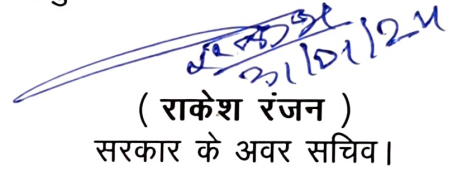 31/01/24
( राकेश रंजन )
सरकार के अवर सचिव।